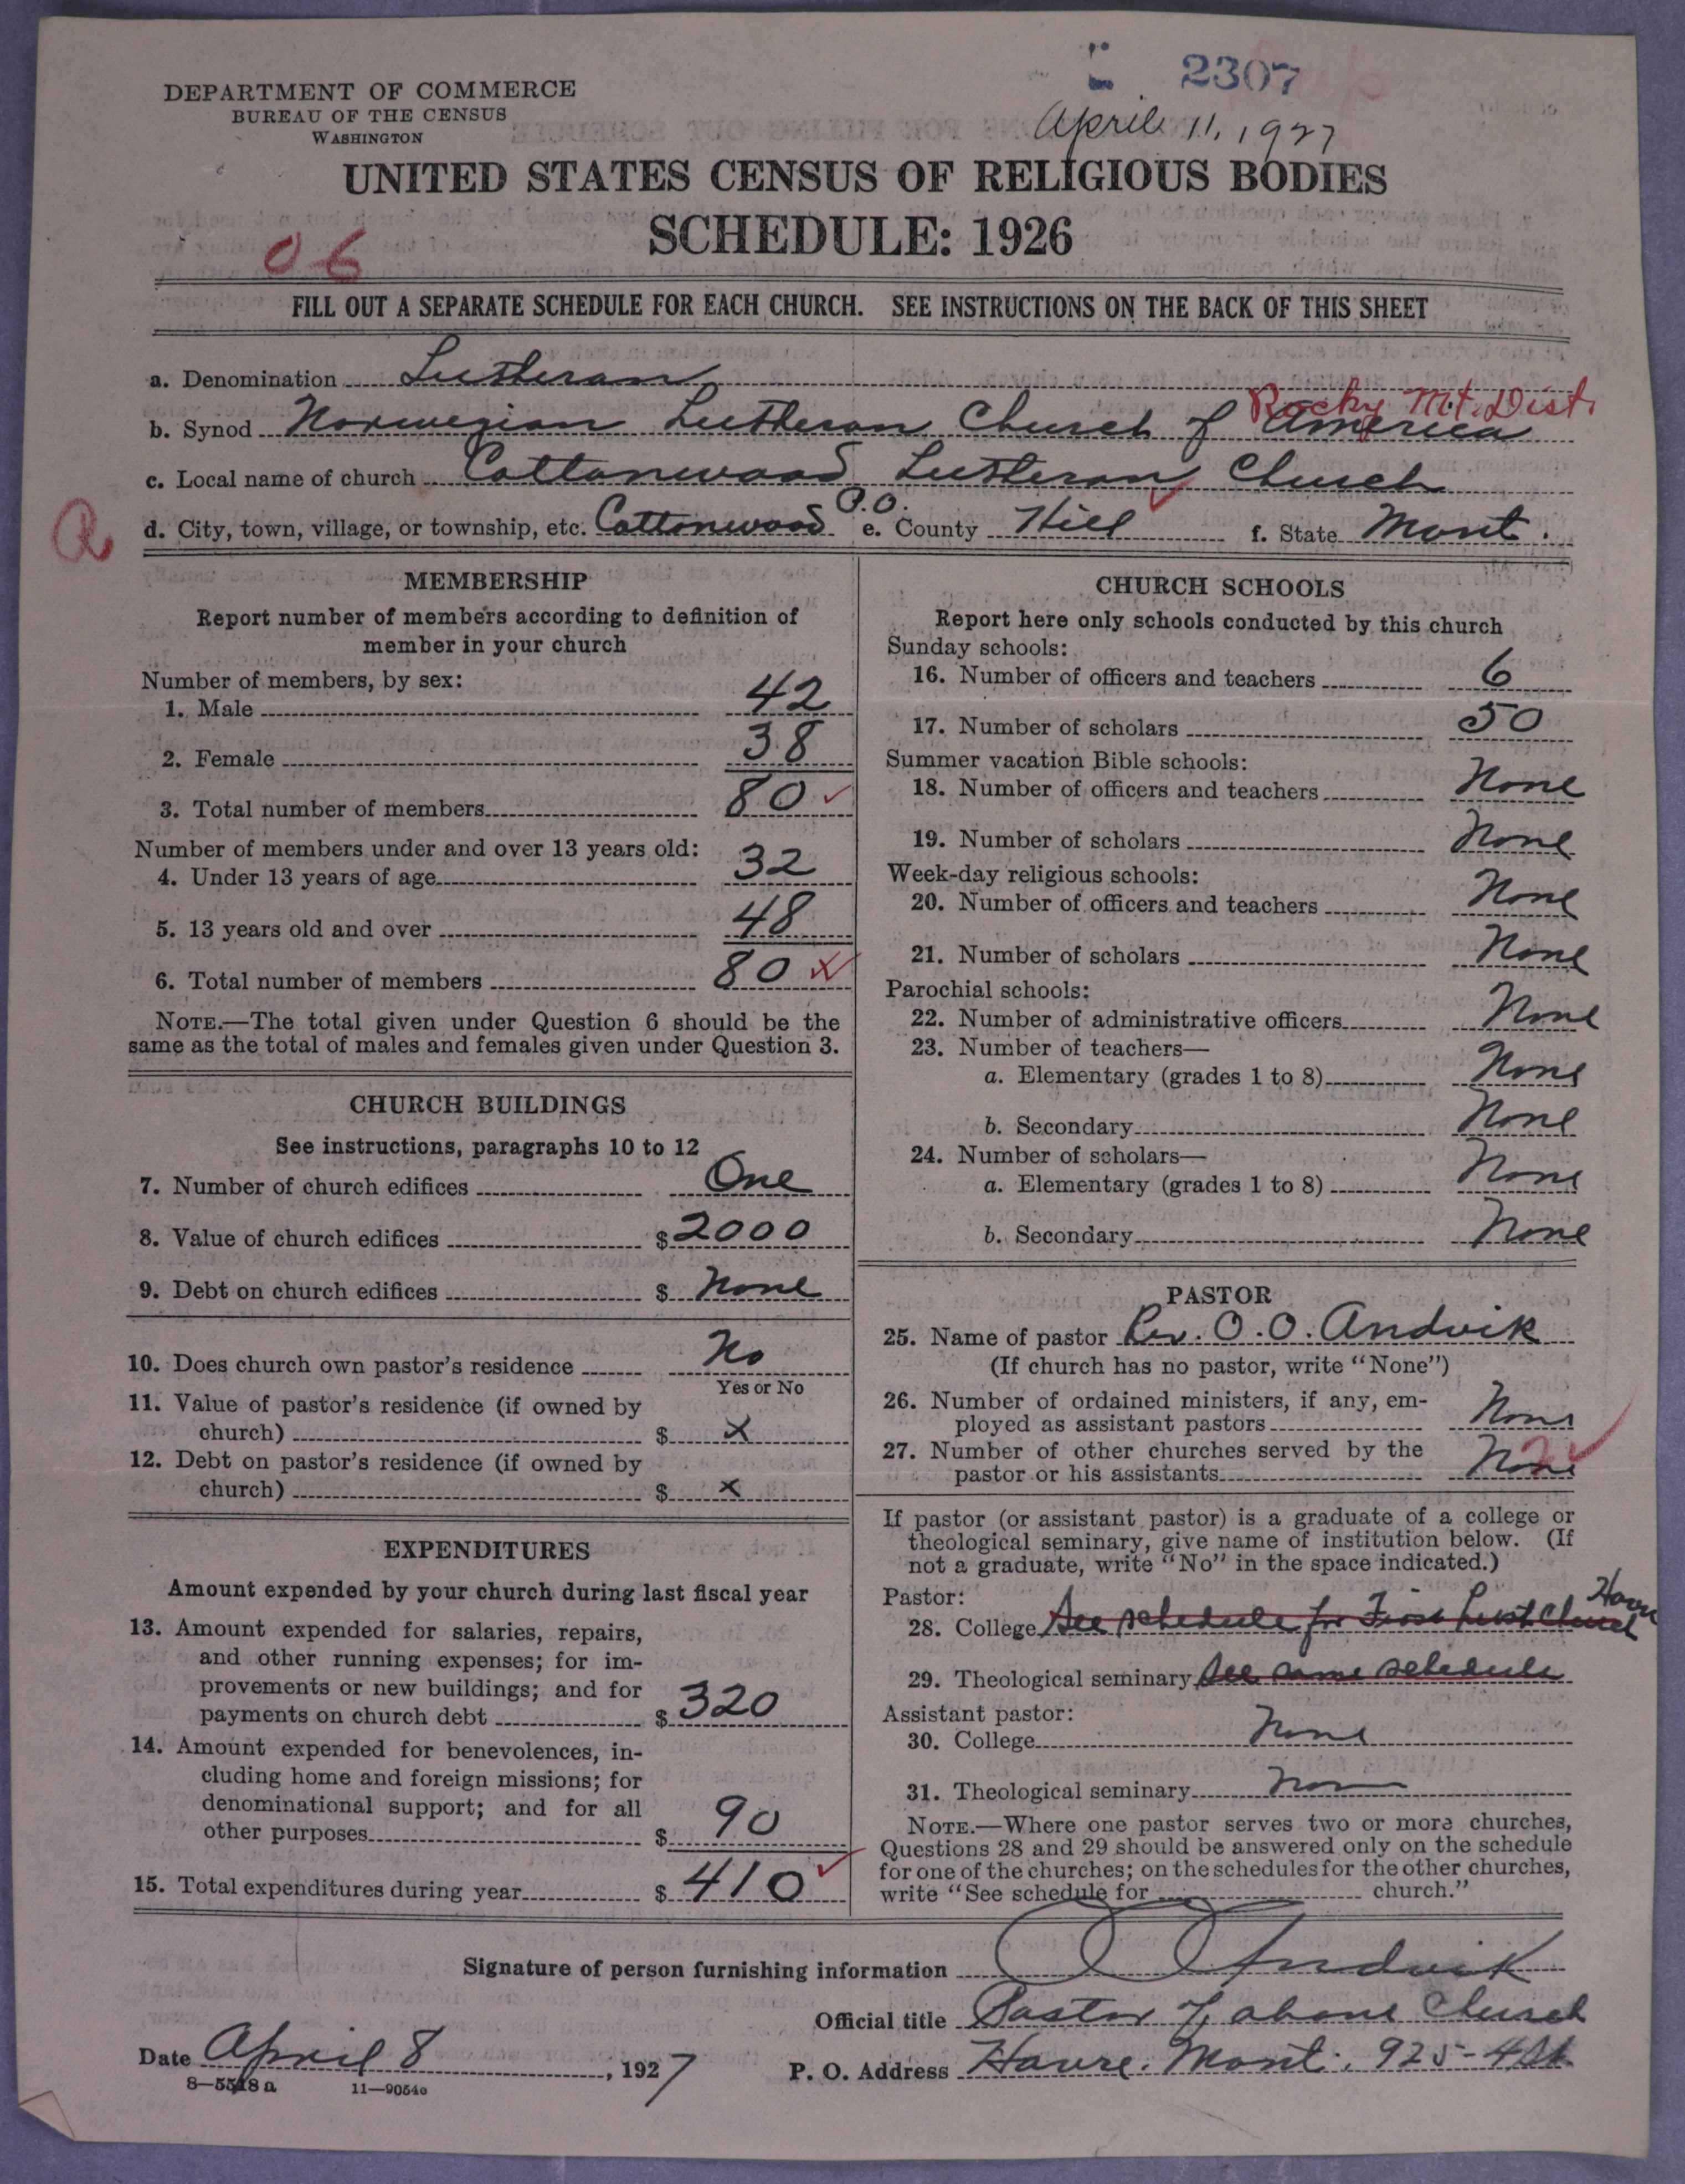 2307
April 11, 1927
DEPARTMENT OF COMMERCE
BUREAU OF THE CENSUS
WASHINGTON
UNITED STATES CENSUS OF RELIGIOUS BODIES
SCHEDULE: 1926
06
FILL OUT A SEPARATE SCHEDULE FOR EACH CHURCH. SEE INSTRUCTIONS ON THE BACK OF THIS SHEET
a. Denomination Lutheran
Rocky Mt. Dist.
b. Synod Norwegian Lutheran Church of America
c. Local name of church Cottonwood Lutheran Church
R d. City, town, village, or township, etc. Cottonwood P.O. e. County Hill f. State Mont.
MEMBERSHIP
Report number of members according to definition of
member in your church
Number of members, by sex:
1. Male 42
2. Female 38
3. Total number of members 80 ✓
Number of members under and over 13 years old:
4. Under 13 years of age 32
5. 13 years old and over 48
6. Total number of members 80
NOTE.—The total given under Question 6 should be the
same as the total of males and females given under Question 3.
CHURCH BUILDINGS
See instructions, paragraphs 10 to 12
7. Number of church edifices One
8. Value of church edifices $ 2000
9. Debt on church edifices $ None
10. Does church own pastor's residence No
Yes or No
11. Value of pastor's residence (if owned by
church) $ x
12. Debt on pastor's residence (if owned by
church) $ x
EXPENDITURES
Amount expended by your church during last fiscal year
13. Amount expended for salaries, repairs,
and other running expenses; for im-
provements or new buildings; and for
payments on church debt $ 320
14. Amount expended for benevolences, in-
cluding home and foreign missions; for
denominational support; and for all
other purposes $ 90
15. Total expenditures during year $ 410 ✓
CHURCH SCHOOLS
Report here only schools conducted by this church
Sunday schools:
16. Number of officers and teachers 6
17. Number of scholars 50
Summer vacation Bible schools:
18. Number of officers and teachers None
19. Number of scholars None
Week-day religious schools:
20. Number of officers and teachers None
21. Number of scholars None
Parochial schools:
22. Number of administrative officers None
23. Number of teachers—
a. Elementary (grades 1 to 8) None
b. Secondary None
24. Number of scholars—
a. Elementary (grades 1 to 8) None
b. Secondary None
PASTOR
25. Name of pastor Rev. O. O. Andvik
(If church has no pastor, write "None")
26. Number of ordained ministers, if any, em-
ployed as assistant pastors None
27. Number of other churches served by the
pastor or his assistants None 2 ✓
If pastor (or assistant pastor) is a graduate of a college or
theological seminary, give name of institution below. (If
not a graduate, write "No" in the space indicated.)
Pastor:
28. College See schedule for First Luth Church Havre
29. Theological seminary See same schedule
Assistant pastor:
30. College None
31. Theological seminary None
NOTE.—Where one pastor serves two or more churches,
Questions 28 and 29 should be answered only on the schedule
for one of the churches; on the schedules for the other churches,
write "See schedule for church."
Signature of person furnishing information O O Andvik
Official title Pastor of above Church
Date April 8, 1927 P. O. Address Havre, Mont. 925-4 St.
8—5518 a 11—9054a